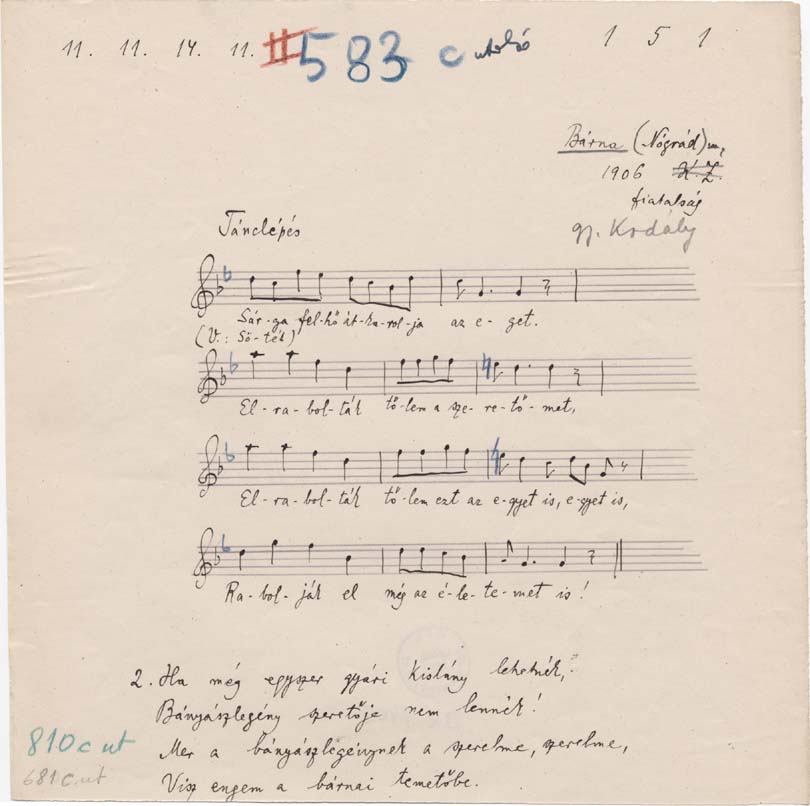 11. 11. 14. 11. #583 c utolsó 1 5 1
Bárna (Nógrád) m,
1906 K. Z.
fiatalság
gy. Kodály
Tánclépés
Sár-ga fel-hő át-ka-rol-ja az e-get.
(V.: Sö-tét)
El-ra-bol-ták tő-lem a sze-re-tő-met,
El-ra-bol-ták tő-lem ezt az e-gyet is, e-gyet is,
Ra-bol-ják el még az é-le-te-met is!
2. Ha még egyszer gyári kislány lehetnék,
Bányászlegény szeretője nem lennék!
Mer a bányászlegénynek a szerelme, szerelme,
Visz engem a bárnai temetőbe.
810 c ut
681 c. ut